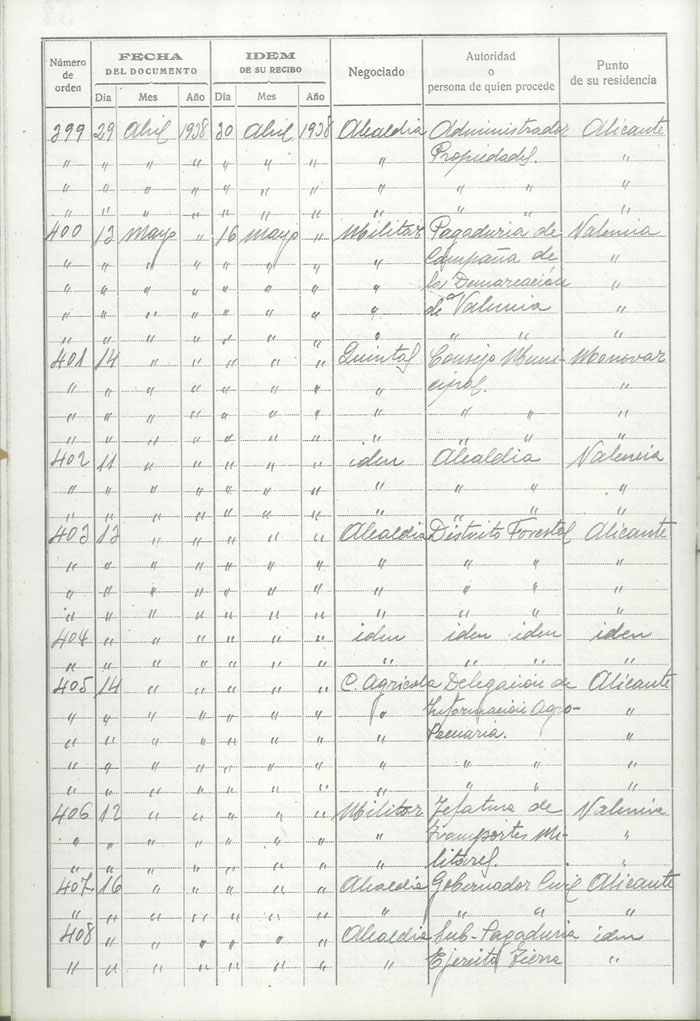 Número de orden FECHA DEL DOCUMENTO IDEM DE SU RECIBO Negociado Autoridad o persona de quien procede Punto de su residencia
Día Mes Año Día Mes Año
399 29 Abril 1938 30 Abril 1938 Alcaldia Administrador Alicante
" " " " " " " " Propiedades. "
" " " " " " " " " " "
" " " " " " " " " " "
400 13 Mayo " 16 Mayo " Militar Pagaduria de Valencia
" " " " " " " " Campaña de "
" " " " " " " " la Demarcación "
" " " " " " " " de Valencia "
" " " " " " " " " " "
401 14 " " " " " Quintas Consejo Muni- Monovar
" " " " " " " " cipal. "
" " " " " " " " " " "
" " " " " " " " " " "
402 11 " " " " " iden Alcaldia Valencia
" " " " " " " " " " "
" " " " " " " " " " "
403 13 " " " " " Alcaldia Distrito Forestal Alicante
" " " " " " " " " " "
" " " " " " " " " " "
" " " " " " " " " " "
404 " " " " " " iden iden iden iden
" " " " " " " " " " "
405 14 " " " " " C. Agricola Delegación de Alicante
" " " " " " " " Información Agro- "
" " " " " " " " Pecuaria. "
" " " " " " " " " " "
" " " " " " " " " " "
406 12 " " " " " Militar Jefatura de Valencia
" " " " " " " " Transportes Mi- "
" " " " " " " " litares. "
407 16 " " " " " Alcaldia Gobernador Civil Alicante
" " " " " " " " " " "
408 " " " " " " Alcaldia Sub-Pagaduria iden
" " " " " " " " Ejercito Tierra "